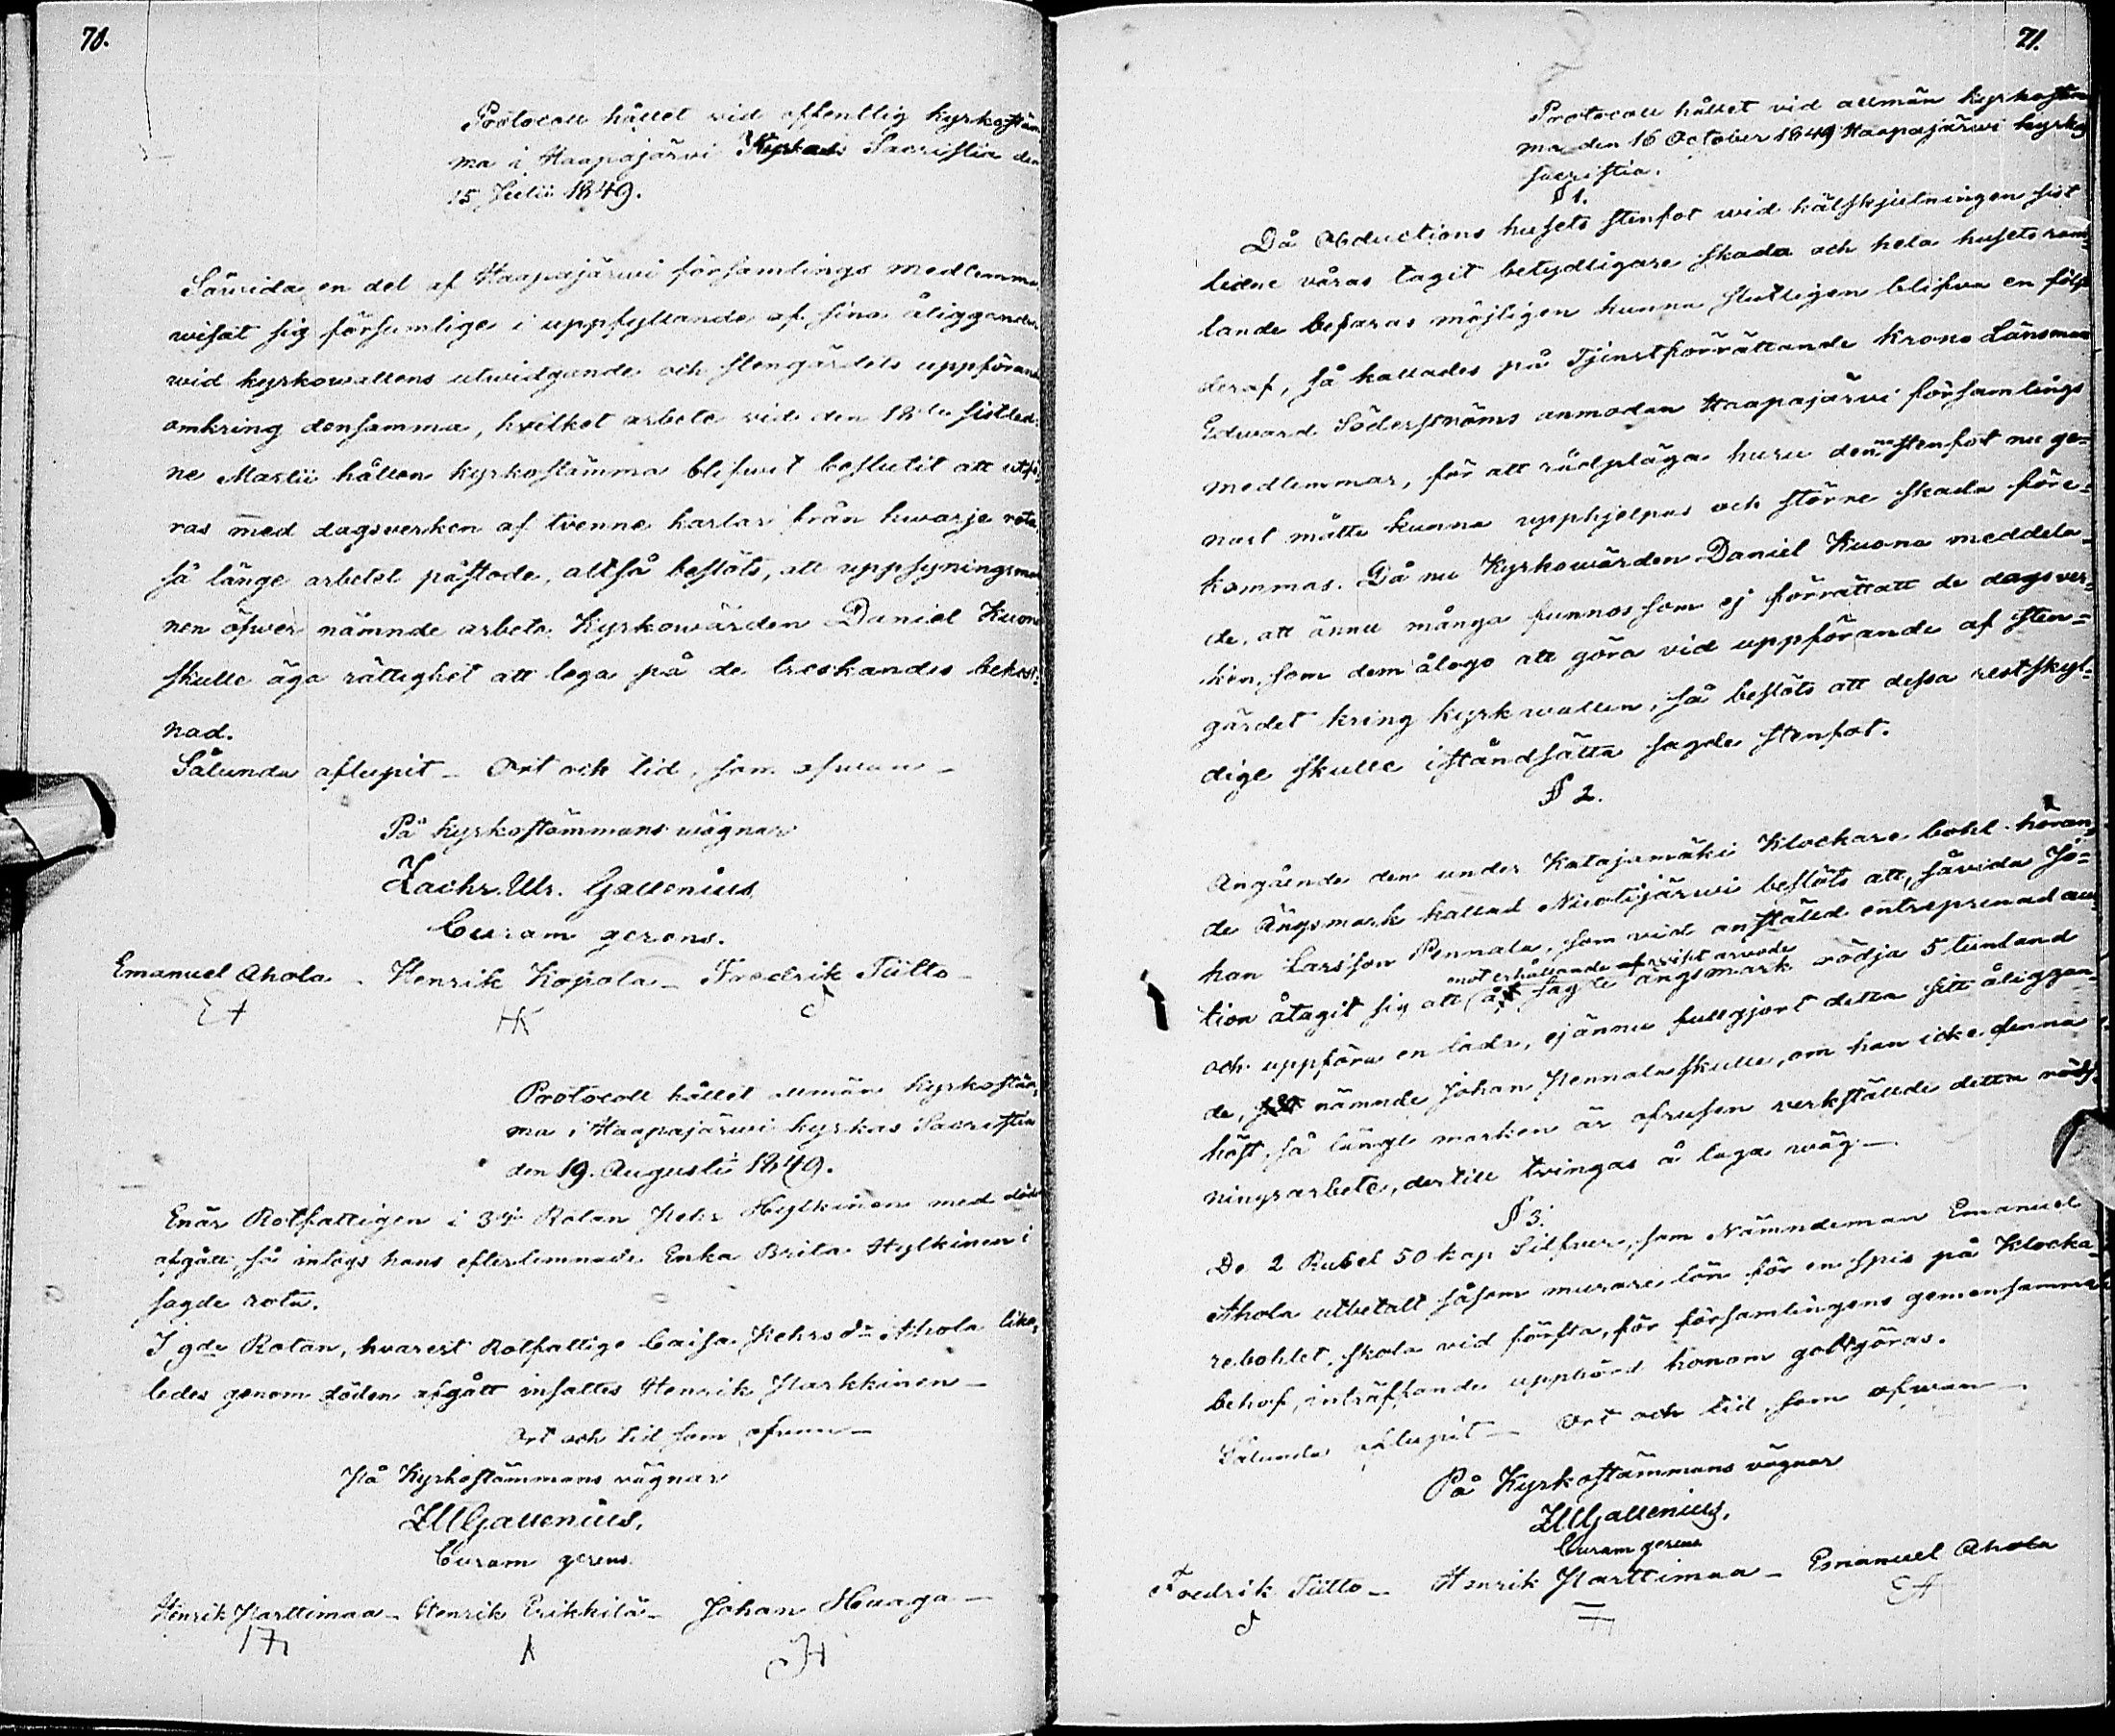 70.
Protocoll hållet vid offentlig kyrkostäm
ma i Haapajärvi Kyrkas Sacristia den
15 Julii 1849.
Såwida en del af Haapajärwi församlings medlemma
wisat sig försumlige i uppfyllande af sina åliggande
wid kyrkowallens utwidgande och stengärdets uppförande
omkring densamma, hvilket arbete vid den 18de sistled-
ne Martii hållen kyrkostämma blifwit beslutit att utfö
ras med dagsverken af tvenne karlar från hwarje rota,
så länge arbetet påstode, altså beslöts, att uppsyningsman
nen öfwer nämnde arbete Kyrkowärden Daniel Kuona
skulle äga rättighet att lega på de breskandes bekost-
nad.
Sålunda aflupit – Ort och tid, som ofwan –
På kyrkostämmans wägnar
Zachr. Ulr. Gallenius,
Curam gerens.
Emanuel Ahola – Henrik Kopola – Fredrik Tiitto –
EA HK
Protocoll hållet allmän kyrkostäm
ma i Haapajärwi kyrkas Sacristia
den 19. Augusti 1849.
Enär Rotfattigen i 3dje Rotan Pehr Hylkinen med död
afgått, så intogs hans efterlemnade Enka Brita Hylkinen i
sagde rota.
I gde Rotan, hvarest Rotfattige Caisa Pehrsdr Ahola lika-
ledes genom döden afgått insattes Henrik Harkkinen –
Ort och tid som ofwan –
På Kyrkostämmans vägnar
ZUGallenius,
Curam gerens
Henrik Harttimaa – Henrik Erikkilä – Johan Haaga –
JH
71.
Protocoll hållet vid allmän kyrkostäm
ma den 16 October 1849 Haapajärwi kyrko
sacristia.
§ 1.
Då Obductions husets stenfot wid kälskjutningen sist
lidne våras tagit betydligare skada och hela husets ram-
lande befaras möjligen kunna slutligen blifva en följd
deraf, så kallades på Tjenstförrättande Krono Länsman
Edward Söderströms anmodan Haapajärwi församlings
medlemmar, för att rådpläga huru den stenfot nu ge-
nast måtte kunna upphjelpas och större skada före-
kommas. Då nu Kyrkowärden Daniel Kuona meddela-
de, att ännu många funnos som ej förrättatt de dagsver-
ken, som dem ålogo att göra vid uppförande af sten-
gärdet kring kyrkwallen, så beslöts att dessa restskyl-
dige skulle iståndsätta sagde stenfot.
§ 2.
Angående den under Katajamäki Klockare bohl höran
de Ängsmark kallad Nivotijärwi beslöts att, såvida Jo-
han Larsson Pennala, som vid anställd entreprenad auc-
mot erhållande af visst arwode
tion åtagit sig att å sagde ängsmark rödja 5 tunland
och uppföra en lada, ej ännu fullgjort detta sitt åliggan-
de, nämnde Johan Pennala skulle, om han icke denna
höst, så länge marken är ofrusen verkställde detta röd-
ningsarbete, dertill tvingas å laga wäg –
§ 3.
De 2 Rubel 50 kop Silfwer, som Nämndeman Emanuel
Ahola utbetalt såsom murare lön för en spis på Klocka-
rebohlet, skola vid första, för församlingens gemensamma
behof, inträffande uppbörd honom godtgöras.
Sålunda aflupit – Ort och tid, som ofwan –
På Kyrkostämmans vägnar
ZUGallenius,
Curam gerens
Fredrik Tiitto – Henrik Harttimaa – Emanuel Ahola
EA